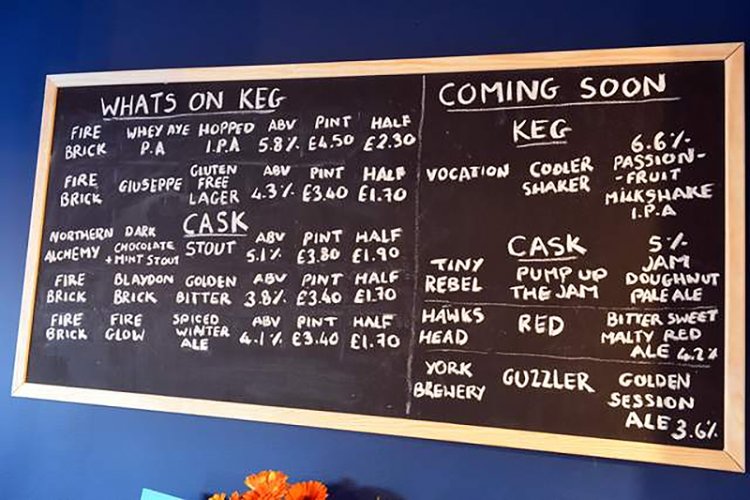 WHATS ON KEG
FIRE BRICK WHEY AYE P.A HOPPED I.P.A ABV 5.8% PINT £4.50 HALF £2.30
FIRE BRICK GIUSEPPE GLUTEN FREE LAGER ABV 4.3% PINT £3.40 HALF £1.70
CASK
NORTHERN ALCHEMY DARK CHOCOLATE + MINT STOUT STOUT ABV 5.1% PINT £3.80 HALF £1.90
FIRE BRICK BLAYDON BRICK GOLDEN BITTER ABV 3.8% PINT £3.40 HALF £1.70
FIRE BRICK FIRE GLOW SPICED WINTER ALE ABV 4.1% PINT £3.40 HALF £1.70
COMING SOON
KEG
VOCATION COOLER SHAKER 6.6% PASSION-
-FRUIT
MILKSHAKE
I.P.A
CASK
TINY REBEL PUMP UP THE JAM 5% JAM DOUGHNUT PALE ALE
HAWKS HEAD RED BITTER SWEET MALTY RED ALE 4.2%
YORK BREWERY GUZZLER GOLDEN SESSION ALE 3.6%